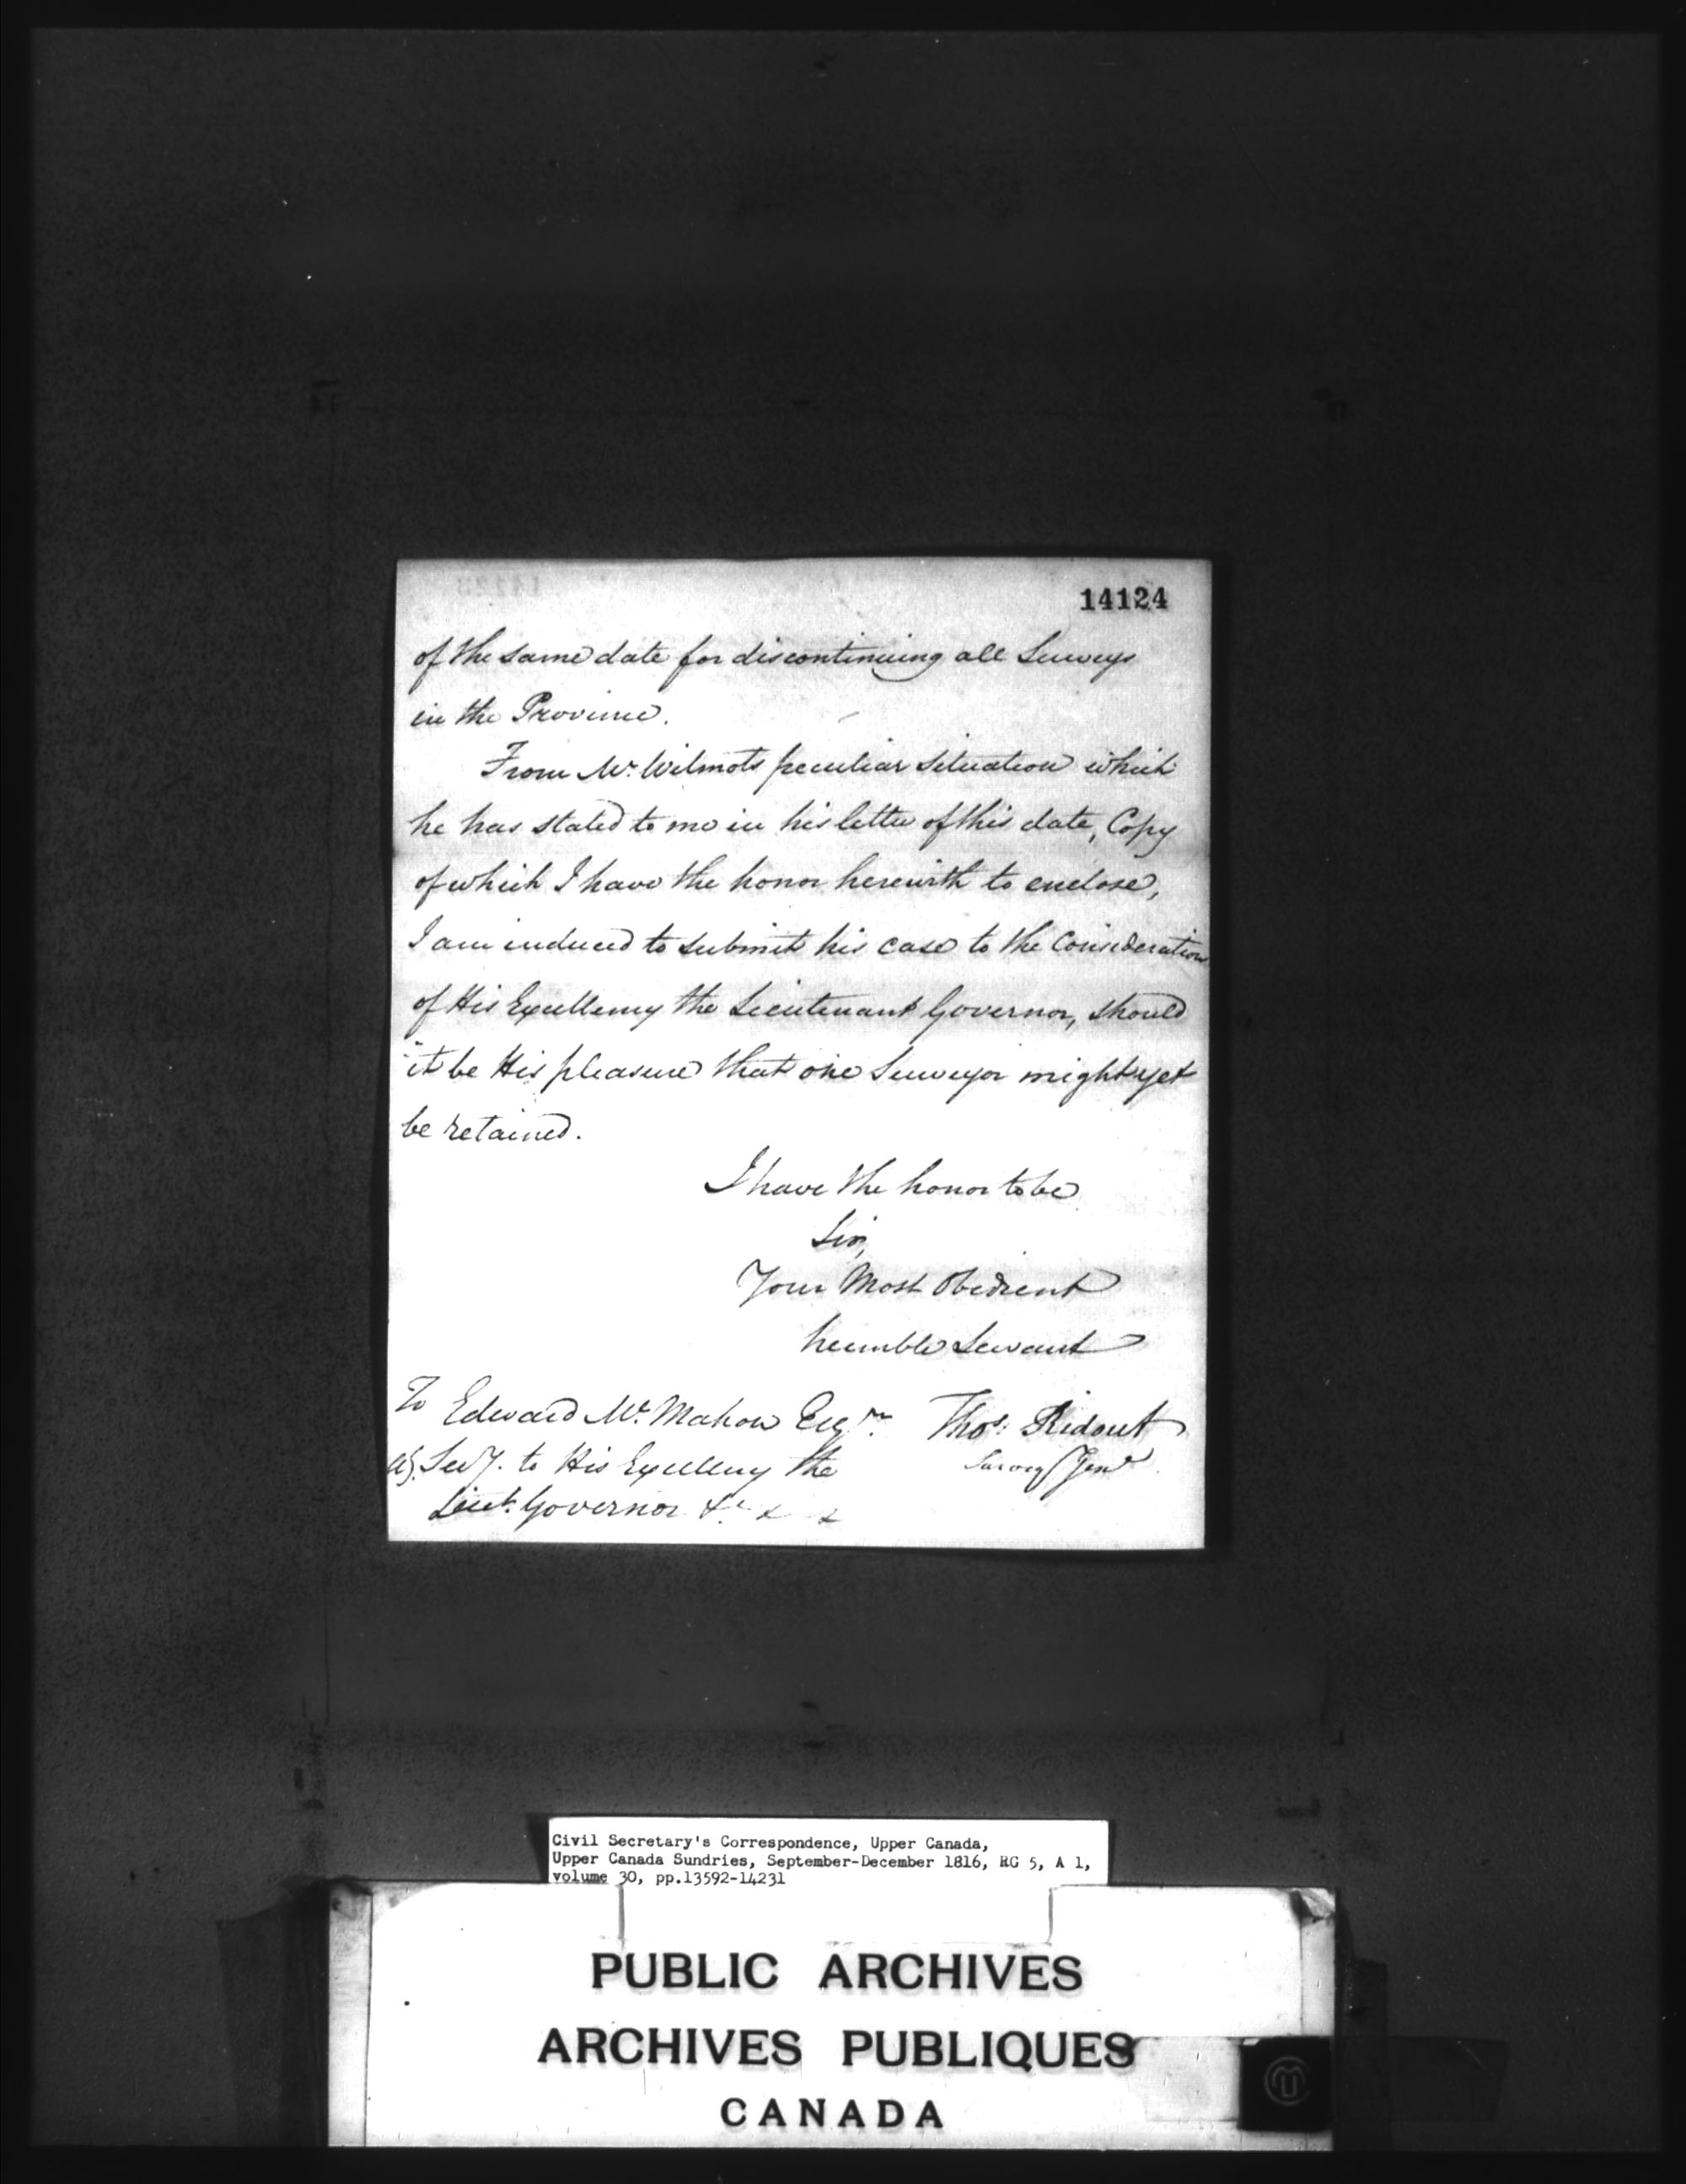 14124
of the same date for discontinuing all Surveys
in the Province.
From Mr. Wilmots peculiar situation which
he has stated to me in his letter of this date, Copy
of which I have the honor herewith to enclose,
I am induced to submit his case to the Consideration
of His Excellency the Lieutenant Governor, should
it be His pleasure that one Surveyor might yet
be retained.
I have the honor to be
Sir,
Your Most Obedient
humble Servant
To Edward Mc. Mahon Esqre.
Thos: Ridout
Survey Genl.
Secy. to His Excellency the
Lieut. Governor &c & &
Civil Secretary's Correspondence, Upper Canada,
Upper Canada Sundries, September-December 1816, RG 5, A 1,
volume 30, pp.13592-14231
PUBLIC ARCHIVES
ARCHIVES PUBLIQUES
CANADA